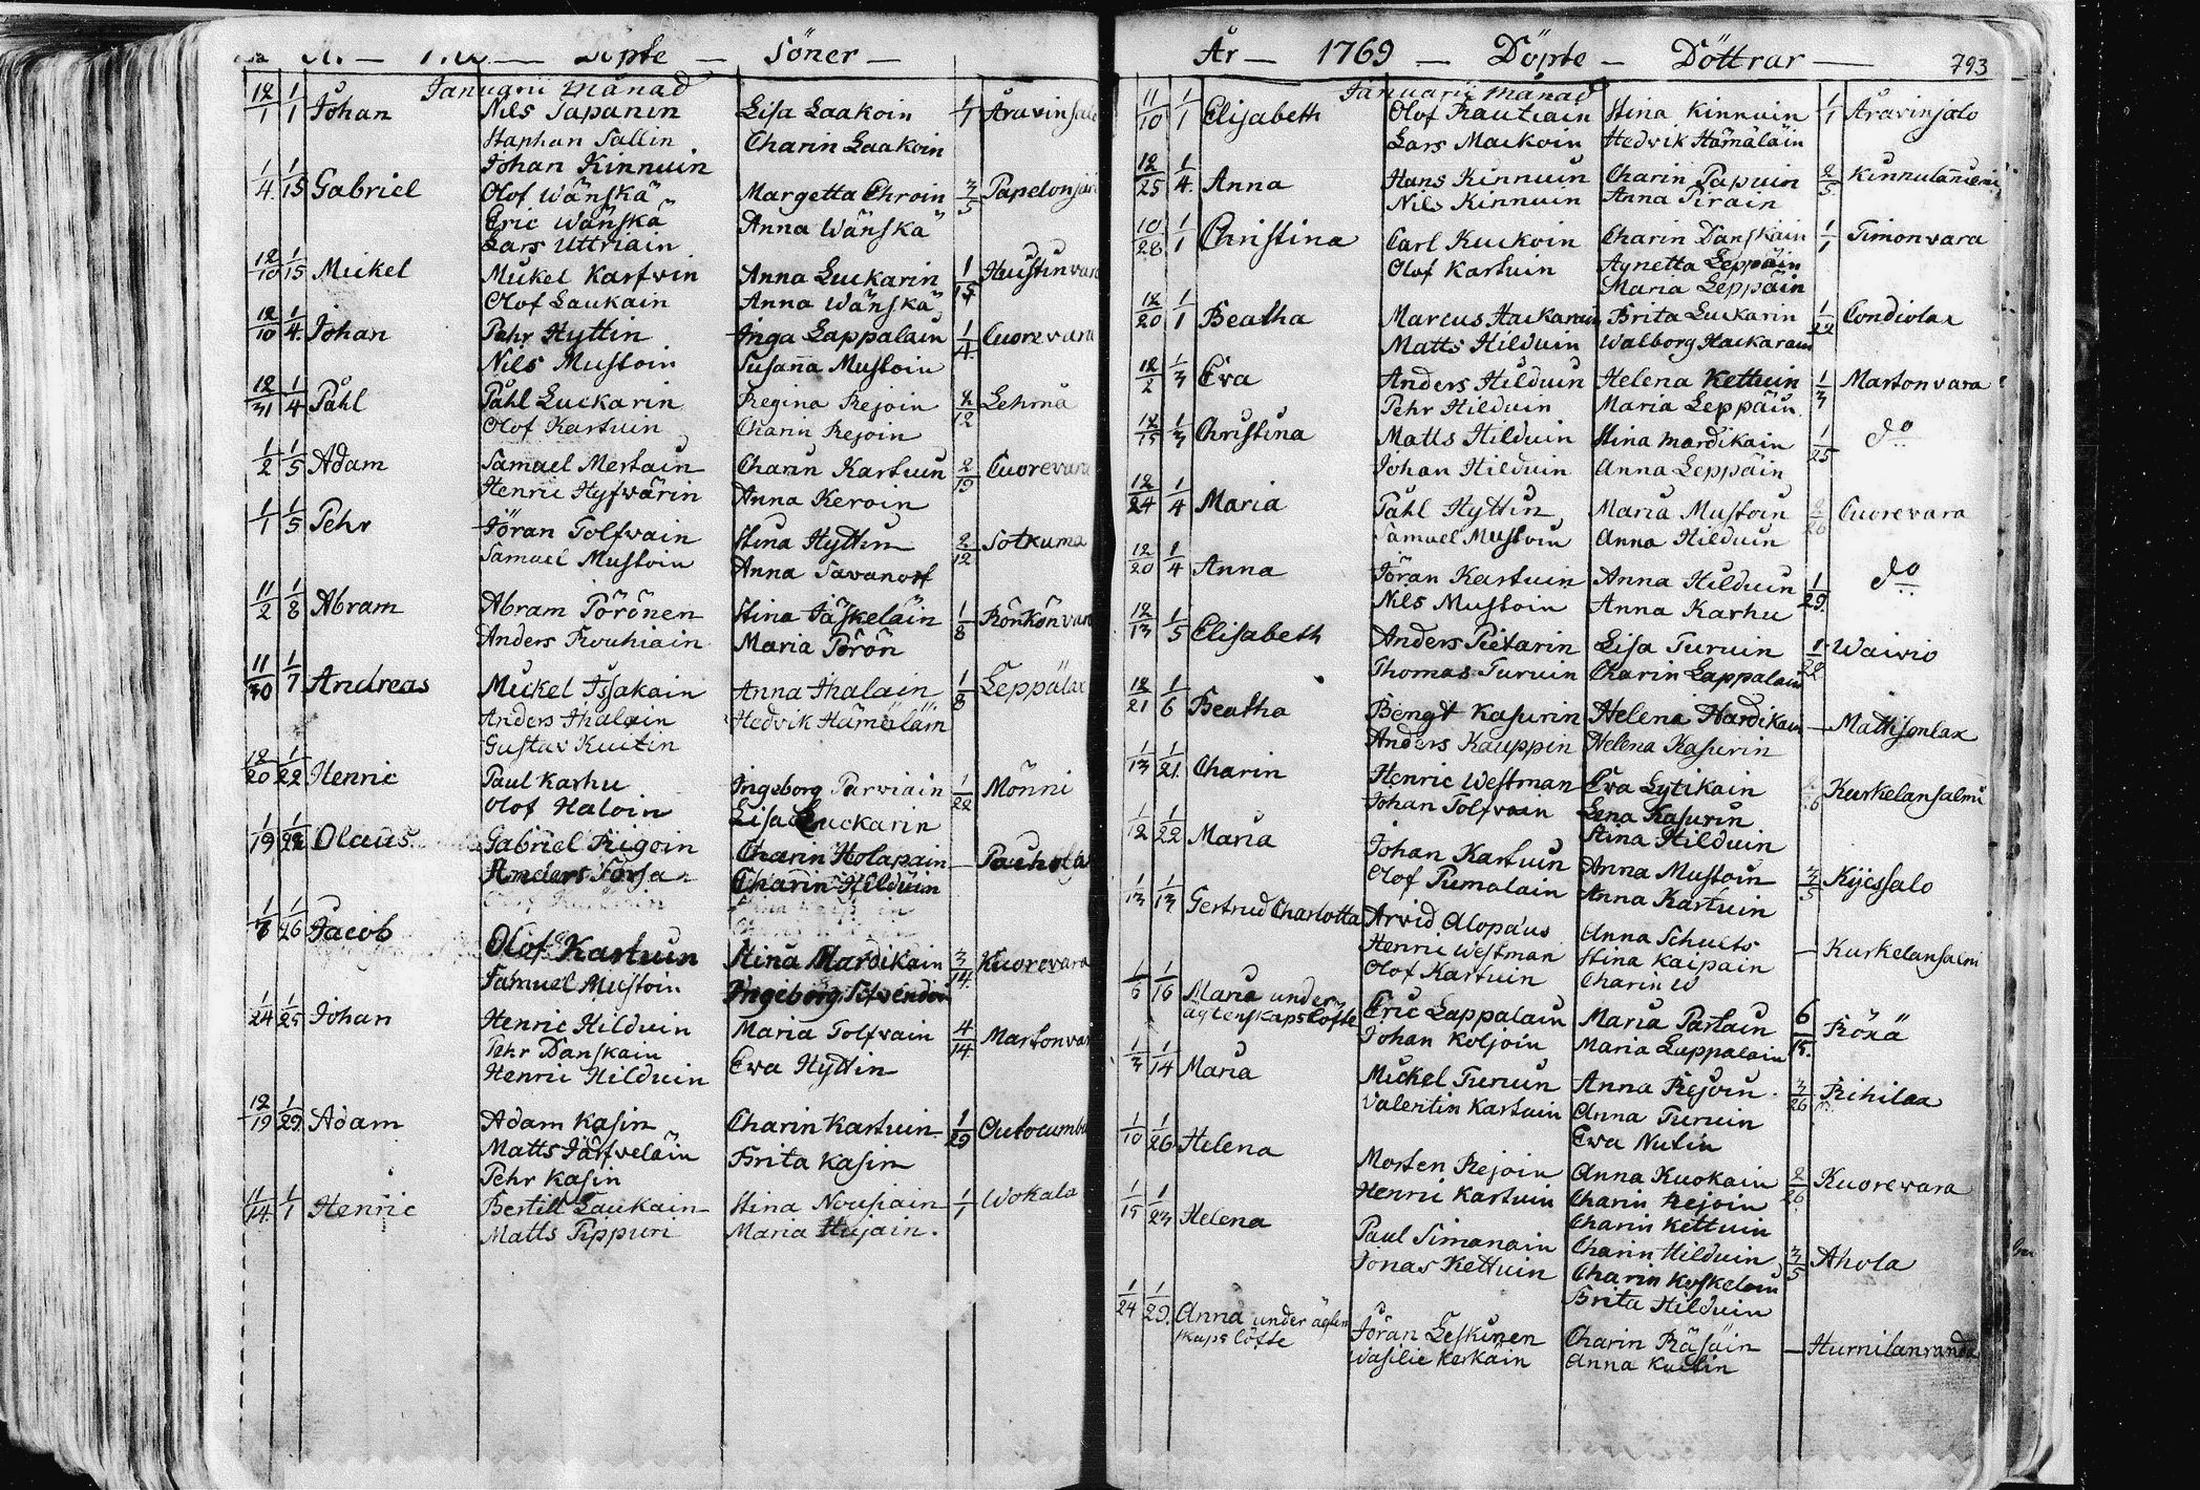 År — 1769 — Döpte — Söner —
Januarii Månad
12/1 1/1 Johan Nils Tapanin Lisa Laakoin 1/1 Åravinsalo
Staphan Sallin Charin Laakoin
Johan Kinnuin
1/4. 1/15 Gabriel Olof Wänskä Margetta Chroin 3/5 Papelonjär
Eric Wänskä Anna Wänskä
Lars Uttriain
12/10 1/15 Mickel Mickel Karfvin Anna Luckarin 1/15 Haustinvara
Olof Laukain Anna Wänskä
12/10 1/4. Johan Pehr Hyttin Inga Lappalain 1/4. Cuorevara
Nils Mustoin Susanna Mustoin
12/31 1/4 Påhl Påhl Luckarin Regina Rejoin 2/12 Lehmä
Olof Kartuin Charin Rejoin
1/2 1/5 Adam Samuel Mertain Charin Kartuin 2/19 Cuorevara
Henric Hyfvärin Anna Keroin
1/1 1/5 Pehr Jöran Tolfvain Stina Hyttin 2/12 Sotkuma
Samuel Mustoin Anna Savanoff
11/2 1/8 Abram Abram Pörönen Stina Jäskeläin 1/8 Rönkönvara
Anders Rouhiain Maria Pörön
11/30 1/7 Andreas Mickel Issakain Anna Ihalain 1/8 Leppälax
Anders Ihalain Hedvik Hämäläin
Gustav Kuitin
12/20 1/22 Henric Paul Karhu Ingeborg Parviain 1/22 Mönni
Olof Haloin Lisa Luckarin
1/19 1/22 Olaus Gabriel Rigoin Charin Holapain — Pauhola
Anders Forsa Charin Hilduin
1/6 1/26 Jacob Olof Kartuin Stina Mardikain 3/14. Kuorevara
Samuel Mustoin Ingeborg
1/24 1/25 Johan Henric Hilduin Maria Tolfvain 4/14 Martonvara
Pehr Danskain Ewa Hyttin
Henric Hilduin
12/19 1/29. Adam Adam Kasin Charin Kartuin 1/29 Outocumbu
Matts Järfveläin Brita Kasin
Pehr Kasin
11/14. 1/1 Henric Bertill Laukain Stina Nousiain 1/1 Wokala
Matts Pippuri Maria Hujain.
År — 1769 — Döpte — Döttrar — 793
Januarii Månad
11/10 1/1 Elisabeth Olof Rautiain Stina Kinnuin 1/1 Åravinsalo
Lars Mackoin Hedvik Hämäläin
12/25 1/4. Anna Hans Kinnuin Charin Papuin 2/5 Kinnulanniemi
Nils Kinnuin Anna Pirain
10/28 1/1 Christina Carl Kuckoin Charin Danskain 1/1 Timonvara
Olof Kartuin Agnetta Leppäin
Maria Leppäin
12/20 1/1 Beatha Marcus Hackarain Brita Luckarin 1/22 Condiolax
Matts Hilduin Walborg Hackarain
12/2 1/3 Eva Anders Hilduin Helena Kettuin 1/3 Martonvara
Pehr Hilduin Maria Leppäin
12/15 1/3 Christina Matts Hilduin Stina Mardikain 1/25 do
Johan Hilduin Anna Leppäin
12/24 1/4 Maria Påhl Hyttin Maria Mustoin 2/26 Cuorevara
Samuel Mustoin Anna Hilduin
12/20 1/4 Anna Jöran Kartuin Anna Hilduin 1/29. do
Nils Mustoin Anna Karhu
12/13 1/5 Elisabeth Anders Pietarin Lisa Turuin 1/22 Waivio
Thomas Turuin Charin Lappalain
12/21 1/6 Beatha Bengt Kasurin Helena Hardikain — Mattisonlax
Anders Kauppin Helena Kasurin
1/13 1/21. Charin Henric Westman Eva Lytikain Kurkelansalmi
Johan Tolfvain Lena Kasurin
Stina Hilduin
1/12 1/22 Maria Johan Kartuin Anna Mustoin 3/5 Kijessalo
Olof Pumalain Anna Kartuin
1/13 1/13 Gertrud Charlotta Arvid Alopæus Anna Schults — Kurkelansalmi
Henric Westman Stina Kaipain
Olof Kartuin Charin W
1/6 1/16 Maria under Eric Lappalain Maria Partain 6/15. Röxä
ägtenskapslöfte Johan Koljoin Maria Lappalain
1/3 1/14 Maria Mickel Turuin Anna Rejoin. 3/26 Rihilax
Valentin Kartuin Anna Turuin
Ewa Nutin
1/10 1/26 Helena Morten Rejoin Anna Kuokain 2/26 Kuorevara
Henric Kartuin Charin Rejoin
Charin Kettuin
1/15 1/23 Helena Paul Simanain Charin Hilduin 3/5 Ahola
Jonas Kettuin Charin Koskeloin
Brita Hilduin
1/24 1/29. Anna under ägten Jöran Leskinen Charin Räsäin — Hurnilanranda
skaps löfte Wasilie Kerkäin Anna Kuitin